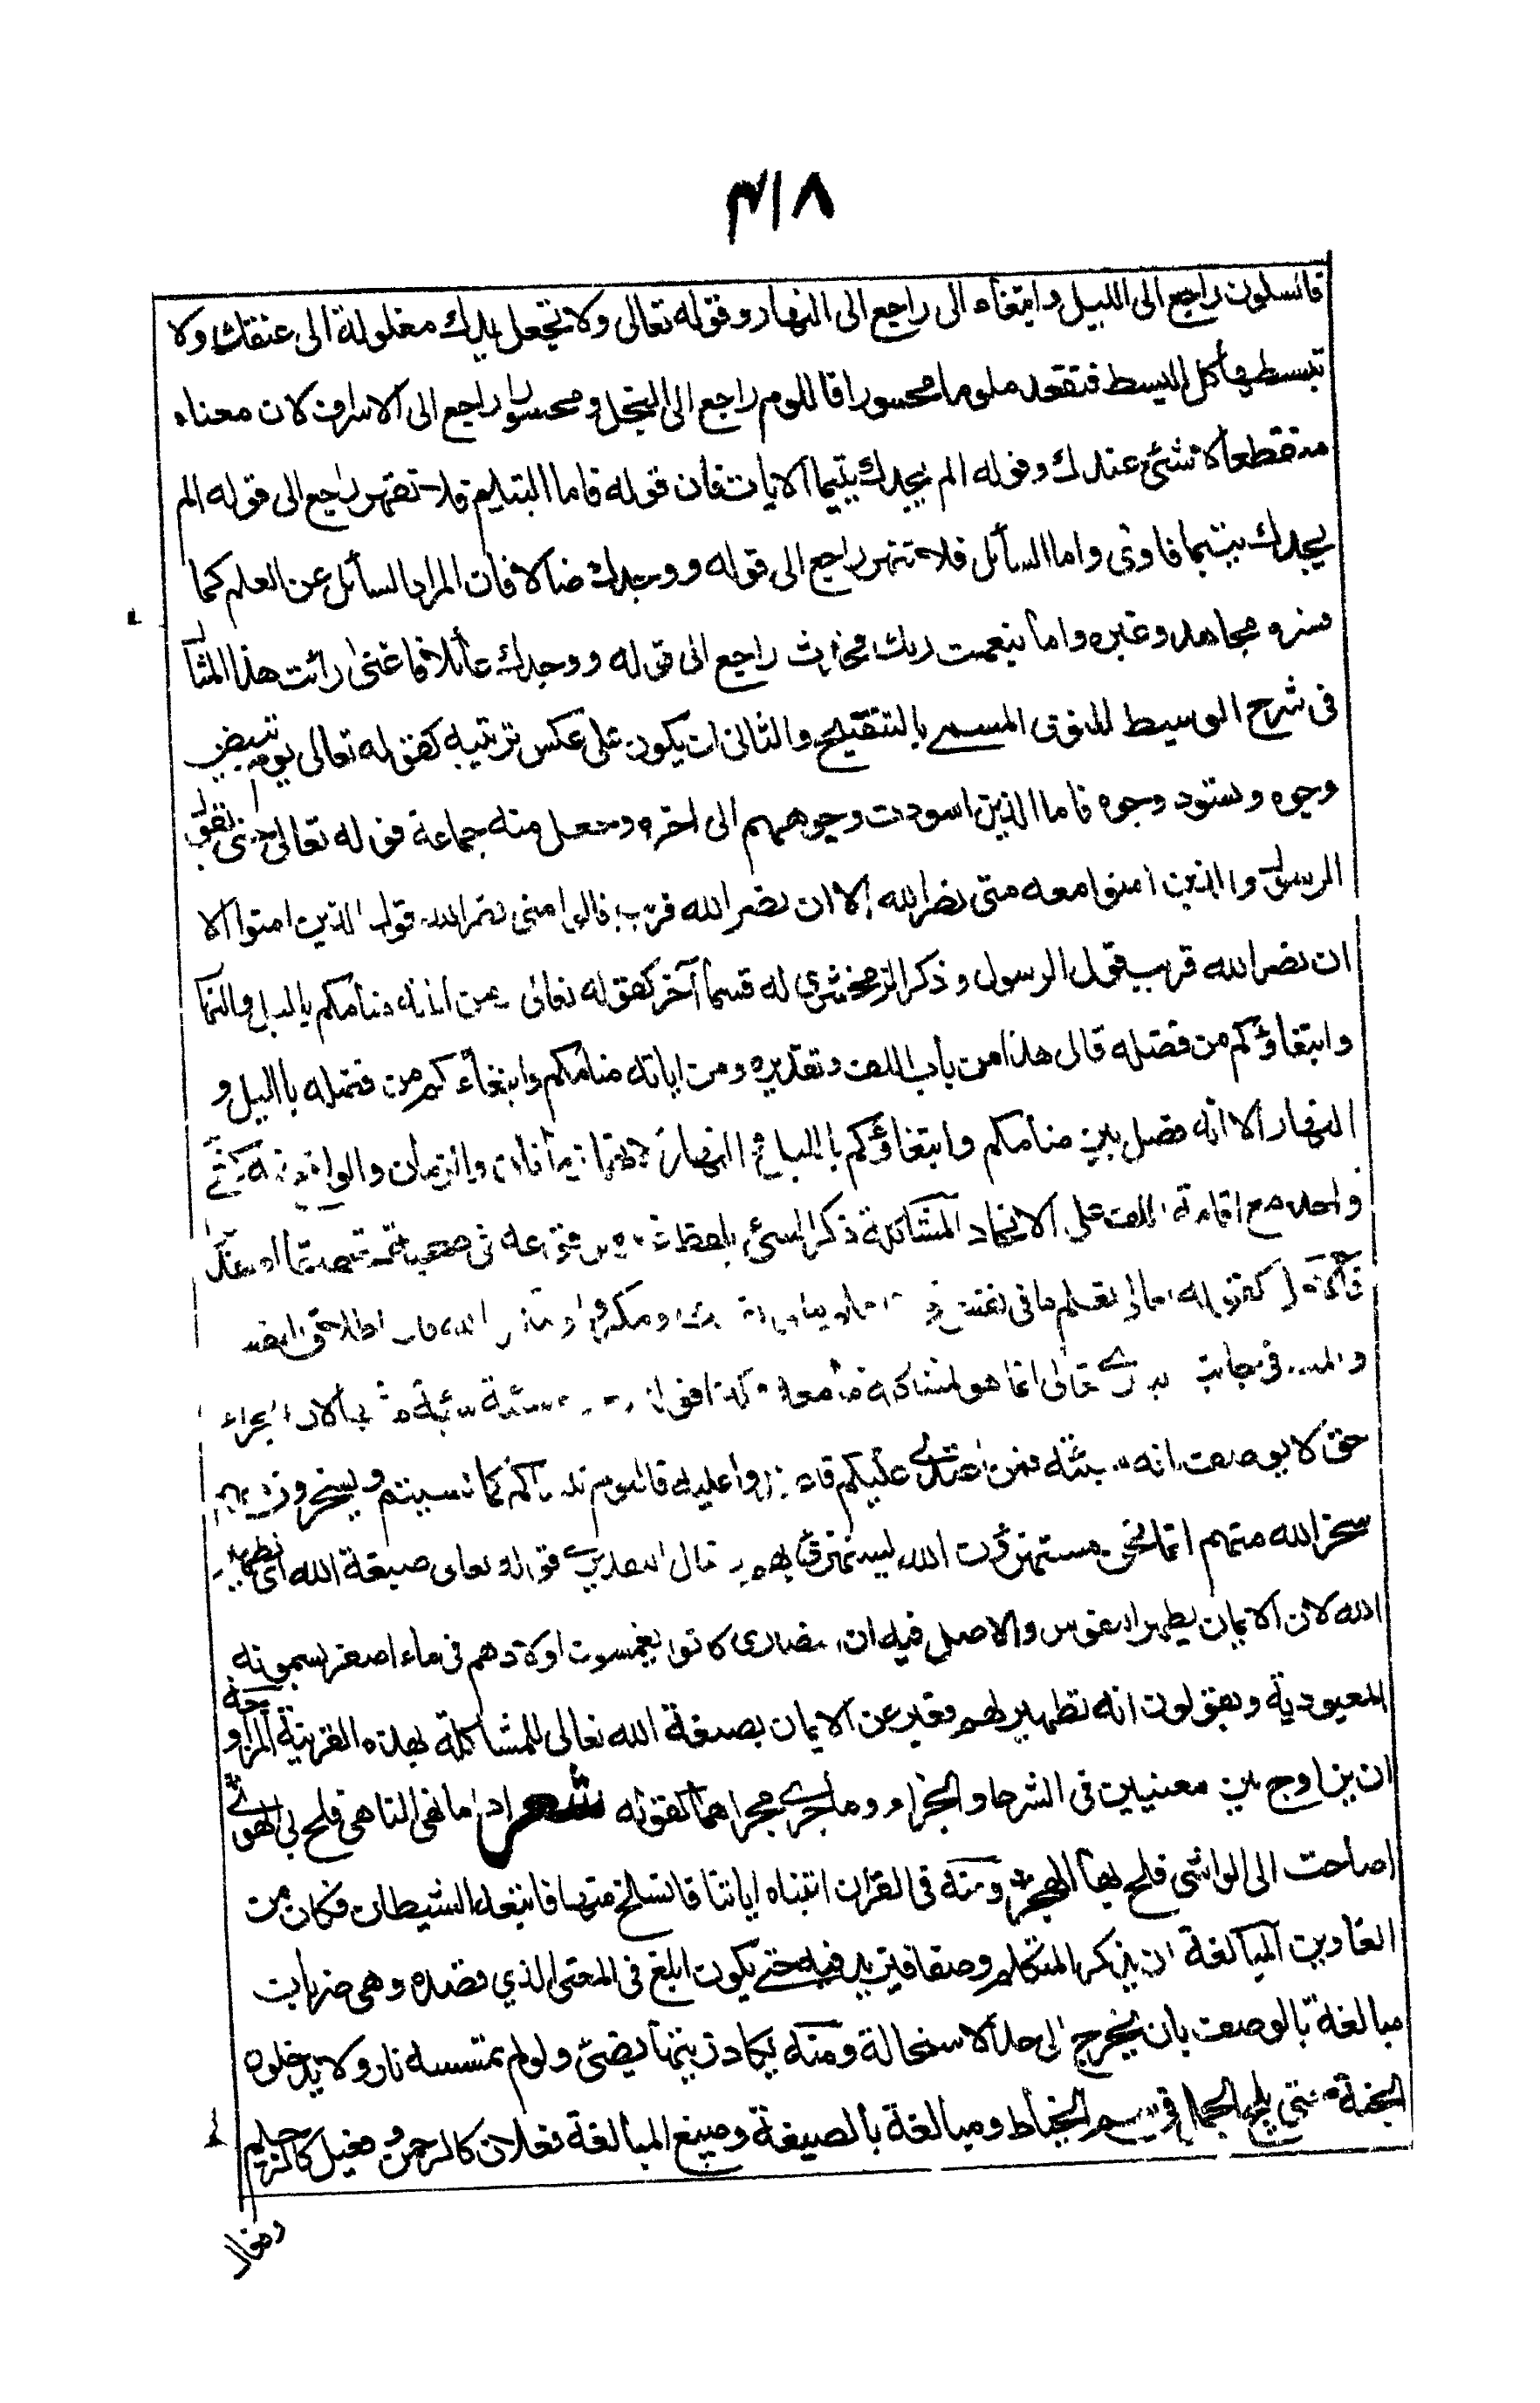 ٣١٨
فالسكون راجع الى الليل وابتغاء الى راجع الى النهار وقوله تعالى ولا تجعل يدك مغلولة الى عنقك ولا
تبسطها كل البسط فتقعد ملوما محسورا فاللوم راجع الى البخل ومحسورا راجع الى الاسراف لان معناه
منقطعا لا شئ عندك وقوله الم يجدك يتيما الايات فان قوله فاما اليتيم فلا تقهر راجع الى قوله الم
يجدك يتيما فاوى واما السائل فلا تنهر راجع الى قوله ووجدك ضالا فان المراد السائل عن العلم كما
فسره مجاهد وغيره واما بنعمت ربك فحدث راجع الى قوله ووجدك عائلا فاغنى رائت هذا المثال
فى شرح الوسيط للنووى المسمے بالتنقيح والثانى ان يكون على عكس ترتيبه كقوله تعالى يوم تبيض
وجوه وتسود وجوه فاما الذين اسودت وجوههم الى اخره وجعل منه جماعة قوله تعالى حتى يقول
الرسول والذين امنوا معه متى نصر الله الا ان نصر الله قريب قالوا متى نصر الله قول الذين امنوا الا
ان نصر الله قريب قول الرسول وذكر الزمخشرى له قسما آخر كقوله تعالى ومن اياته منامكم بالليل والنها
وابتغاؤكم من فضله قال هذا من باب اللف وتقديره ومن اياته منامكم وابتغاءكم من فضله باليل و
النهار الا انه فصل بين منامكم وابتغاؤكم بالليل والنهار لانهما زمانان والزمان والواقع فيه كشئ
واحد مع اقامة اللف على الاتحاد المشاكلة ذكر الشئ بلفظ غيره لوقوعه فى صحبته
كقوله تعالى تعلم ما فى نفسى ومكروا ومكر الله فان اطلاق النفس
والمكر فى جانب البارى تعالى انما هو لمشاكلة ما معه وكذا قوله سيئة سيئة مثلها لان الجزاء
حق لا يوصف بانه سيئة فمن اعتدى عليكم فاعتدوا عليه فاليوم ننساكم كما نسيتم ويسخرون منهم
سخر الله منهم انما نحن مستهزؤن الله يستهزئ بهم وقال تعالى صبغة الله اى تطهير
الله لان الايمان يطهر النفوس والاصل فيه ان النصارى كانوا يغمسون اولادهم فى ماء اصفر يسمونه
المعمودية ويقولون انه تطهير لهم فعبر عن الايمان بصبغة الله تعالى للمشاكلة بهذه القرينة المزاوجة
ان يزاوج بين معنيين فى الشرط والجزاء وما جرى مجراهما كقوله شعر اذا ما نهى الناهى فلج بى الهوى
اصاخت الى الواشى فلج بها الهجر ومنه فى القران اتيناه اياتنا فانسلخ منها فاتبعه الشيطان فكان من
الغاوين المبالغة ان يذكر المتكلم وصفا فيزيد فيه حتى يكون ابلغ فى المعنى الذي قصده وهى ضربان
مبالغة بالوصف بان يخرج الى حد الاستحالة ومنه يكاد زيتها يضئ ولو لم تمسسه نار ولا يدخلون
الجنة حتى يلج الجمل فى سم الخياط ومبالغة بالصيغة وصيغ المبالغة فعلان كالرحمن وفعيل كالرحيم
وفعال